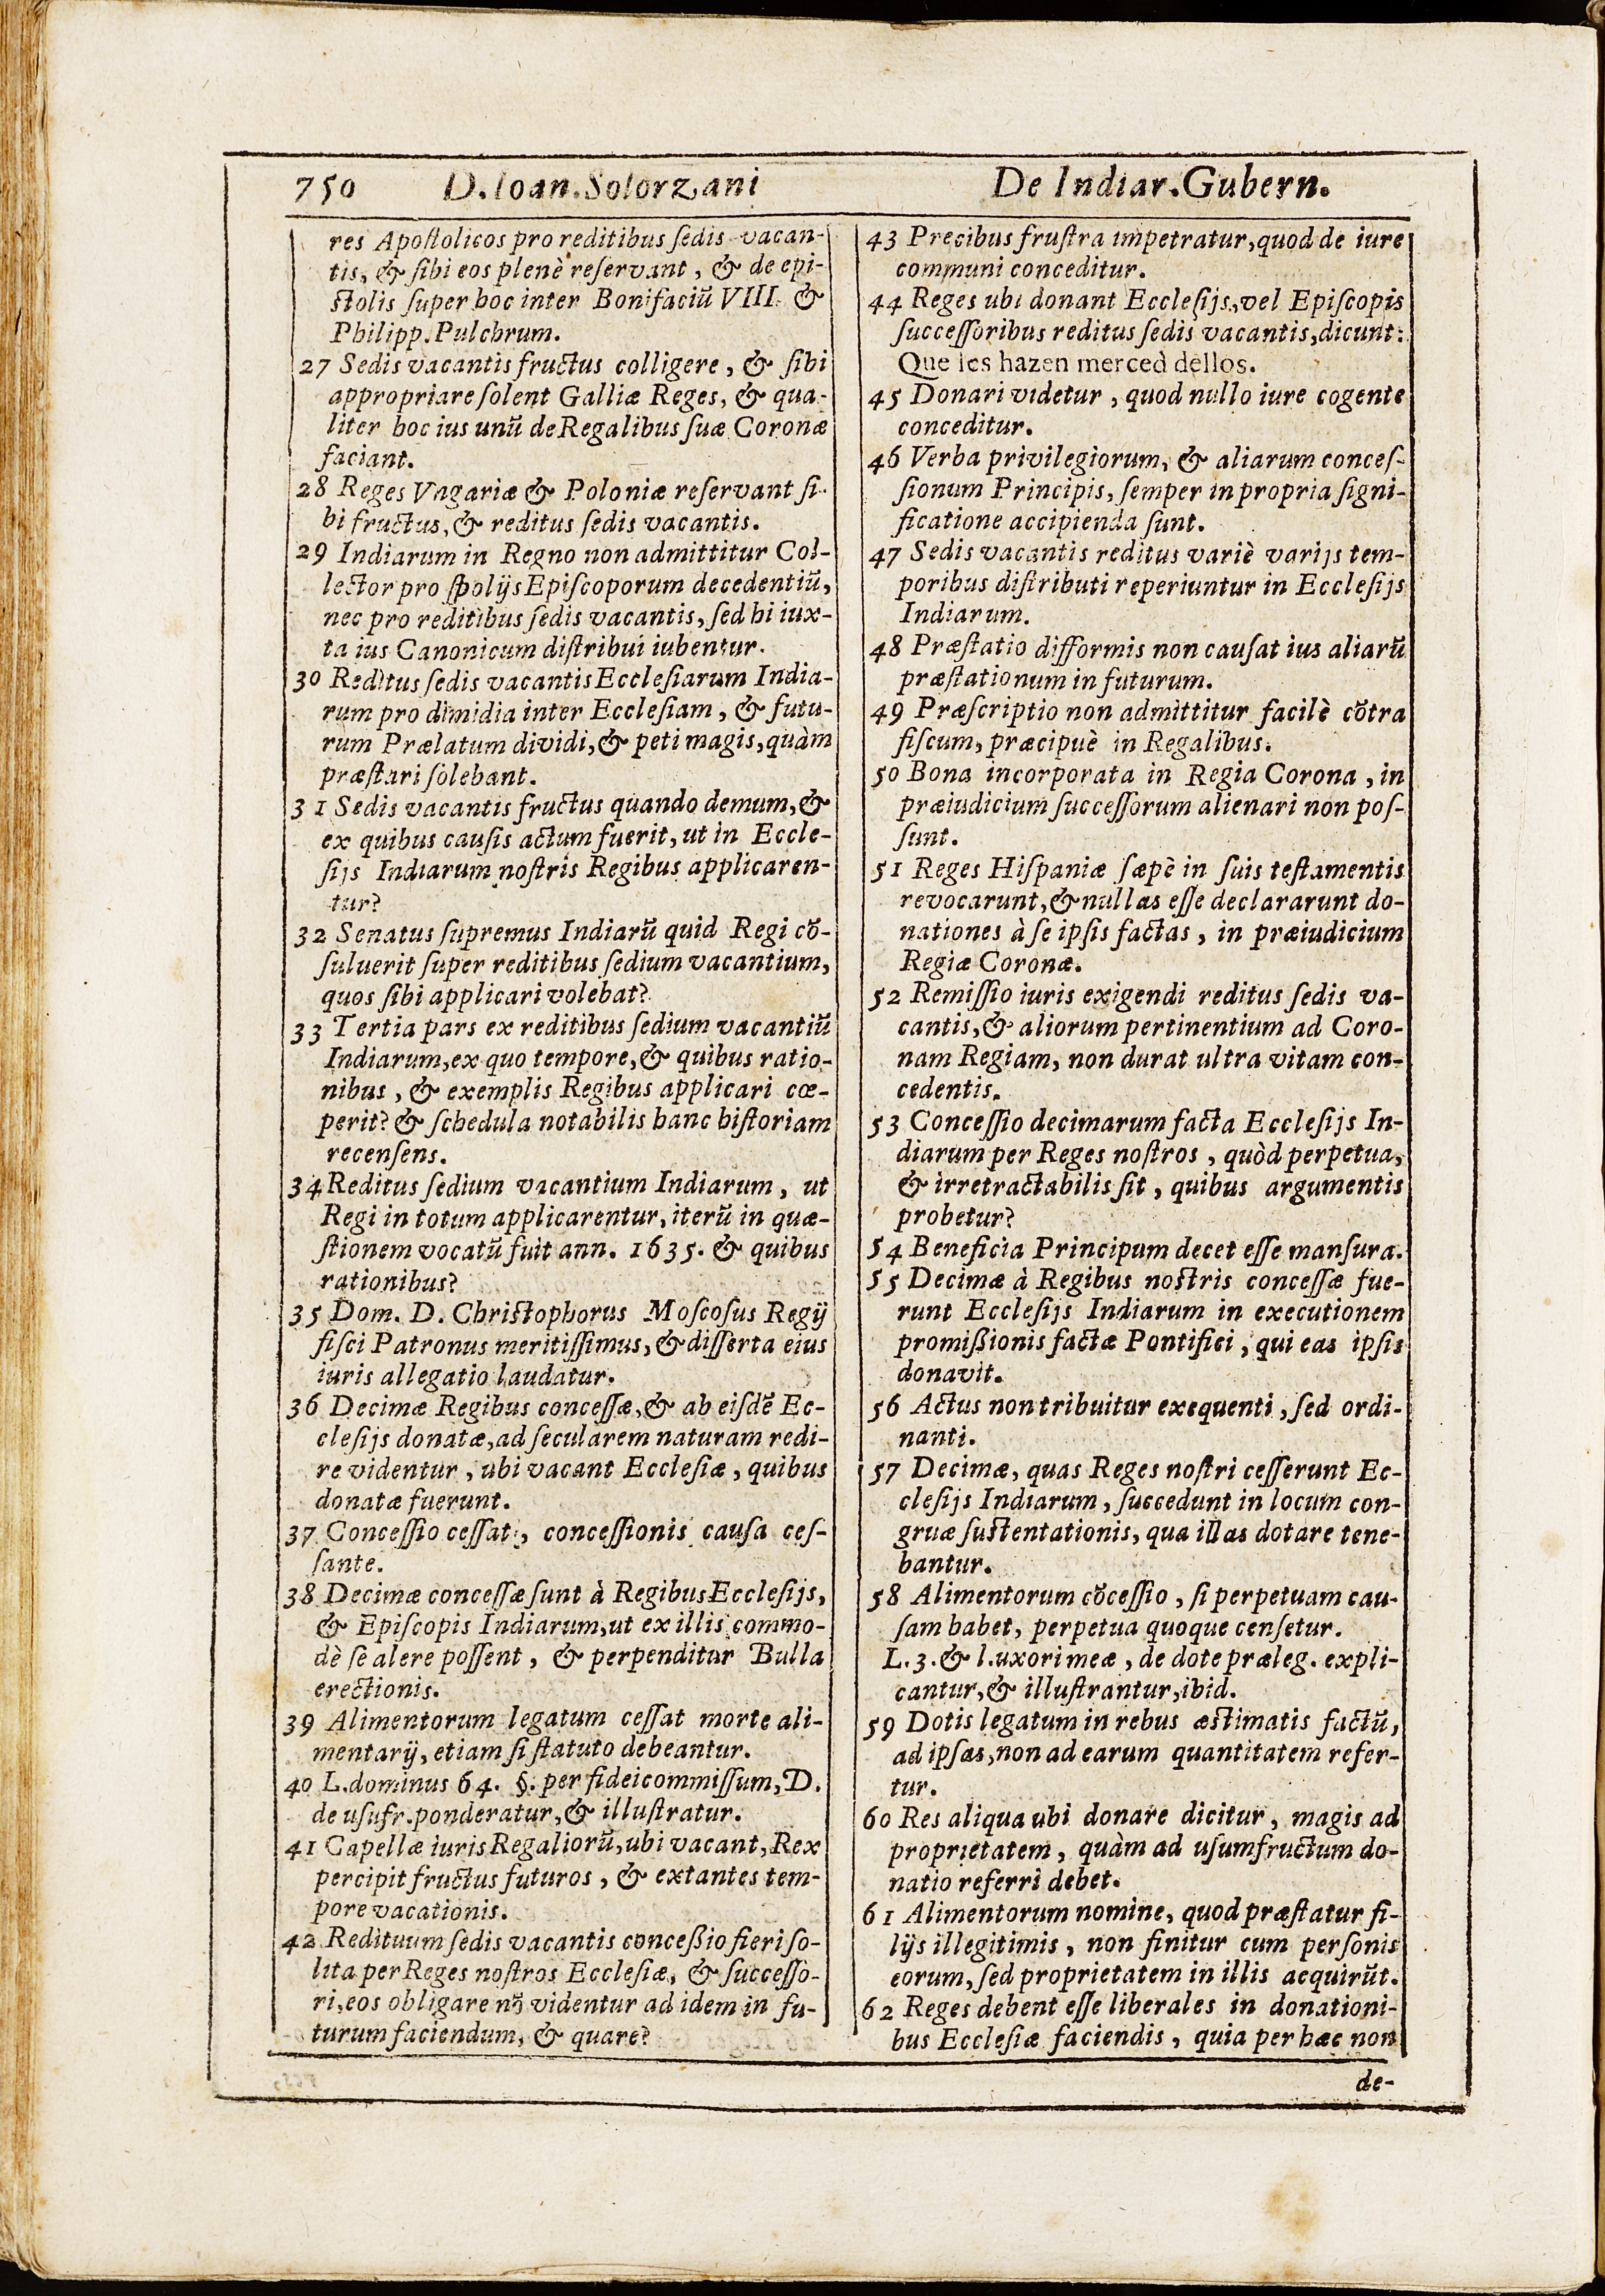 750 D. Ioan. Solorzani De Indiar. Gubern.
res Apostolicos pro reditibus ſedis vacan-
tis, & ſibi eos plenè reſervant, & de epi-
ſtolis ſuper hoc inter Bonifaciũ VIII. &
Philipp. Pulchrum.
27 Sedis vacantis fructus colligere, & ſibi
appropriare ſolent Galliæ Reges, & qua-
liter hoc ius unũ de Regalibus ſuæ Coronæ
faciant.
28 Reges Vngariæ & Poloniæ reſervant ſi-
bi fructus, & reditus ſedis vacantis.
29 Indiarum in Regno non admittitur Col-
lector pro ſpolijs Epiſcoporum decedentiũ,
nec pro reditibus ſedis vacantis, ſed hi iux-
ta ius Canonicum diſtribui iubentur.
30 Reditus ſedis vacantis Eccleſiarum India-
rum pro dimidia inter Eccleſiam, & futu-
rum Prælatum dividi, & peti magis, quàm
præſtari ſolebant.
31 Sedis vacantis fructus quando demum, &
ex quibus cauſis actum fuerit, ut in Eccle-
ſijs Indiarum noſtris Regibus applicaren-
tur?
32 Senatus ſupremus Indiarũ quid Regi cõ-
ſuluerit ſuper reditibus ſedium vacantium,
quos ſibi applicari volebat?
33 Tertia pars ex reditibus ſedium vacantiũ
Indiarum, ex quo tempore, & quibus ratio-
nibus, & exemplis Regibus applicari cœ-
perit? & ſchedula notabilis hanc hiſtoriam
recenſens.
34 Reditus ſedium vacantium Indiarum, ut
Regi in totum applicarentur, iterũ in quæ-
ſtionem vocatũ fuit ann. 1635. & quibus
rationibus?
35 Dom. D. Chriſtophorus Moſcoſus Regij
fiſci Patronus meritiſſimus, & diſſerta eius
iuris allegatio laudatur.
36 Decimæ Regibus conceſſæ, & ab eiſdẽ Ec-
cleſijs donatæ, ad ſecularem naturam redi-
re videntur, ubi vacant Eccleſiæ, quibus
donatæ fuerunt.
37 Conceſſio ceſſat, conceſſionis cauſa ceſ-
ſante.
38 Decimæ conceſſæ ſunt à Regibus Eccleſijs,
& Epiſcopis Indiarum, ut ex illis commo-
dè ſe alere poſſent, & perpenditur Bulla
erectionis.
39 Alimentorum legatum ceſſat morte ali-
mentarij, etiam ſi ſtatuto debeantur.
40 L. dominus 64. §. per fideicommiſſum, D.
de uſufr. ponderatur, & illuſtratur.
41 Capellæ iuris Regaliorũ, ubi vacant, Rex
percipit fructus futuros, & extantes tem-
pore vacationis.
42 Redituum ſedis vacantis conceßio fieri ſo-
lita per Reges noſtros Eccleſiæ, & ſucceſſo-
ri, eos obligare nõ videntur ad idem in fu-
turum faciendum, & quare?
43 Precibus fruſtra impetratur, quod de iure
communi conceditur.
44 Reges ubi donant Eccleſijs, vel Epiſcopis
ſucceſſoribus reditus ſedis vacantis, dicunt:
Que les hazen merced dellos.
45 Donari videtur, quod nullo iure cogente
conceditur.
46 Verba privilegiorum, & aliarum conceſ-
ſionum Principis, ſemper in propria ſigni-
ficatione accipienda ſunt.
47 Sedis vacantis reditus variè varijs tem-
poribus diſtributi reperiuntur in Eccleſijs
Indiarum.
48 Præſtatio difformis non cauſat ius aliarũ
præſtationum in futurum.
49 Præſcriptio non admittitur facilè cõtra
fiſcum, præcipuè in Regalibus.
50 Bona incorporata in Regia Corona, in
præiudicium ſucceſſorum alienari non poſ-
ſunt.
51 Reges Hiſpaniæ ſæpè in ſuis teſtamentis
revocarunt, & nullas eſſe declararunt do-
nationes à ſe ipſis factas, in præiudicium
Regiæ Coronæ.
52 Remiſſio iuris exigendi reditus ſedis va-
cantis, & aliorum pertinentium ad Coro-
nam Regiam, non durat ultra vitam con-
cedentis.
53 Conceſſio decimarum facta Eccleſijs In-
diarum per Reges noſtros, quòd perpetua,
& irretractabilis ſit, quibus argumentis
probetur?
54 Beneficia Principum decet eſſe manſura.
55 Decimæ à Regibus noſtris conceſſæ fue-
runt Eccleſijs Indiarum in executionem
promißionis factæ Pontifici, qui eas ipſis
donavit.
56 Actus non tribuitur exequenti, ſed ordi-
nanti.
57 Decimæ, quas Reges noſtri ceſſerunt Ec-
cleſijs Indiarum, ſuccedunt in locum con-
gruæ ſuſtentationis, qua illas dotare tene-
bantur.
58 Alimentorum cõceſſio, ſi perpetuam cau-
ſam habet, perpetua quoque cenſetur.
L. 3. & l. uxori meæ, de dote præleg. expli-
cantur, & illuſtrantur, ibid.
59 Dotis legatum in rebus æſtimatis factũ,
ad ipſas, non ad earum quantitatem refer-
tur.
60 Res aliqua ubi donare dicitur, magis ad
proprietatem, quàm ad uſumfructum do-
natio referri debet.
61 Alimentorum nomine, quod præſtatur fi-
lijs illegitimis, non finitur cum perſonis
eorum, ſed proprietatem in illis acquirũt.
62 Reges debent eſſe liberales in donationi-
bus Eccleſiæ faciendis, quia per hæc non
de-